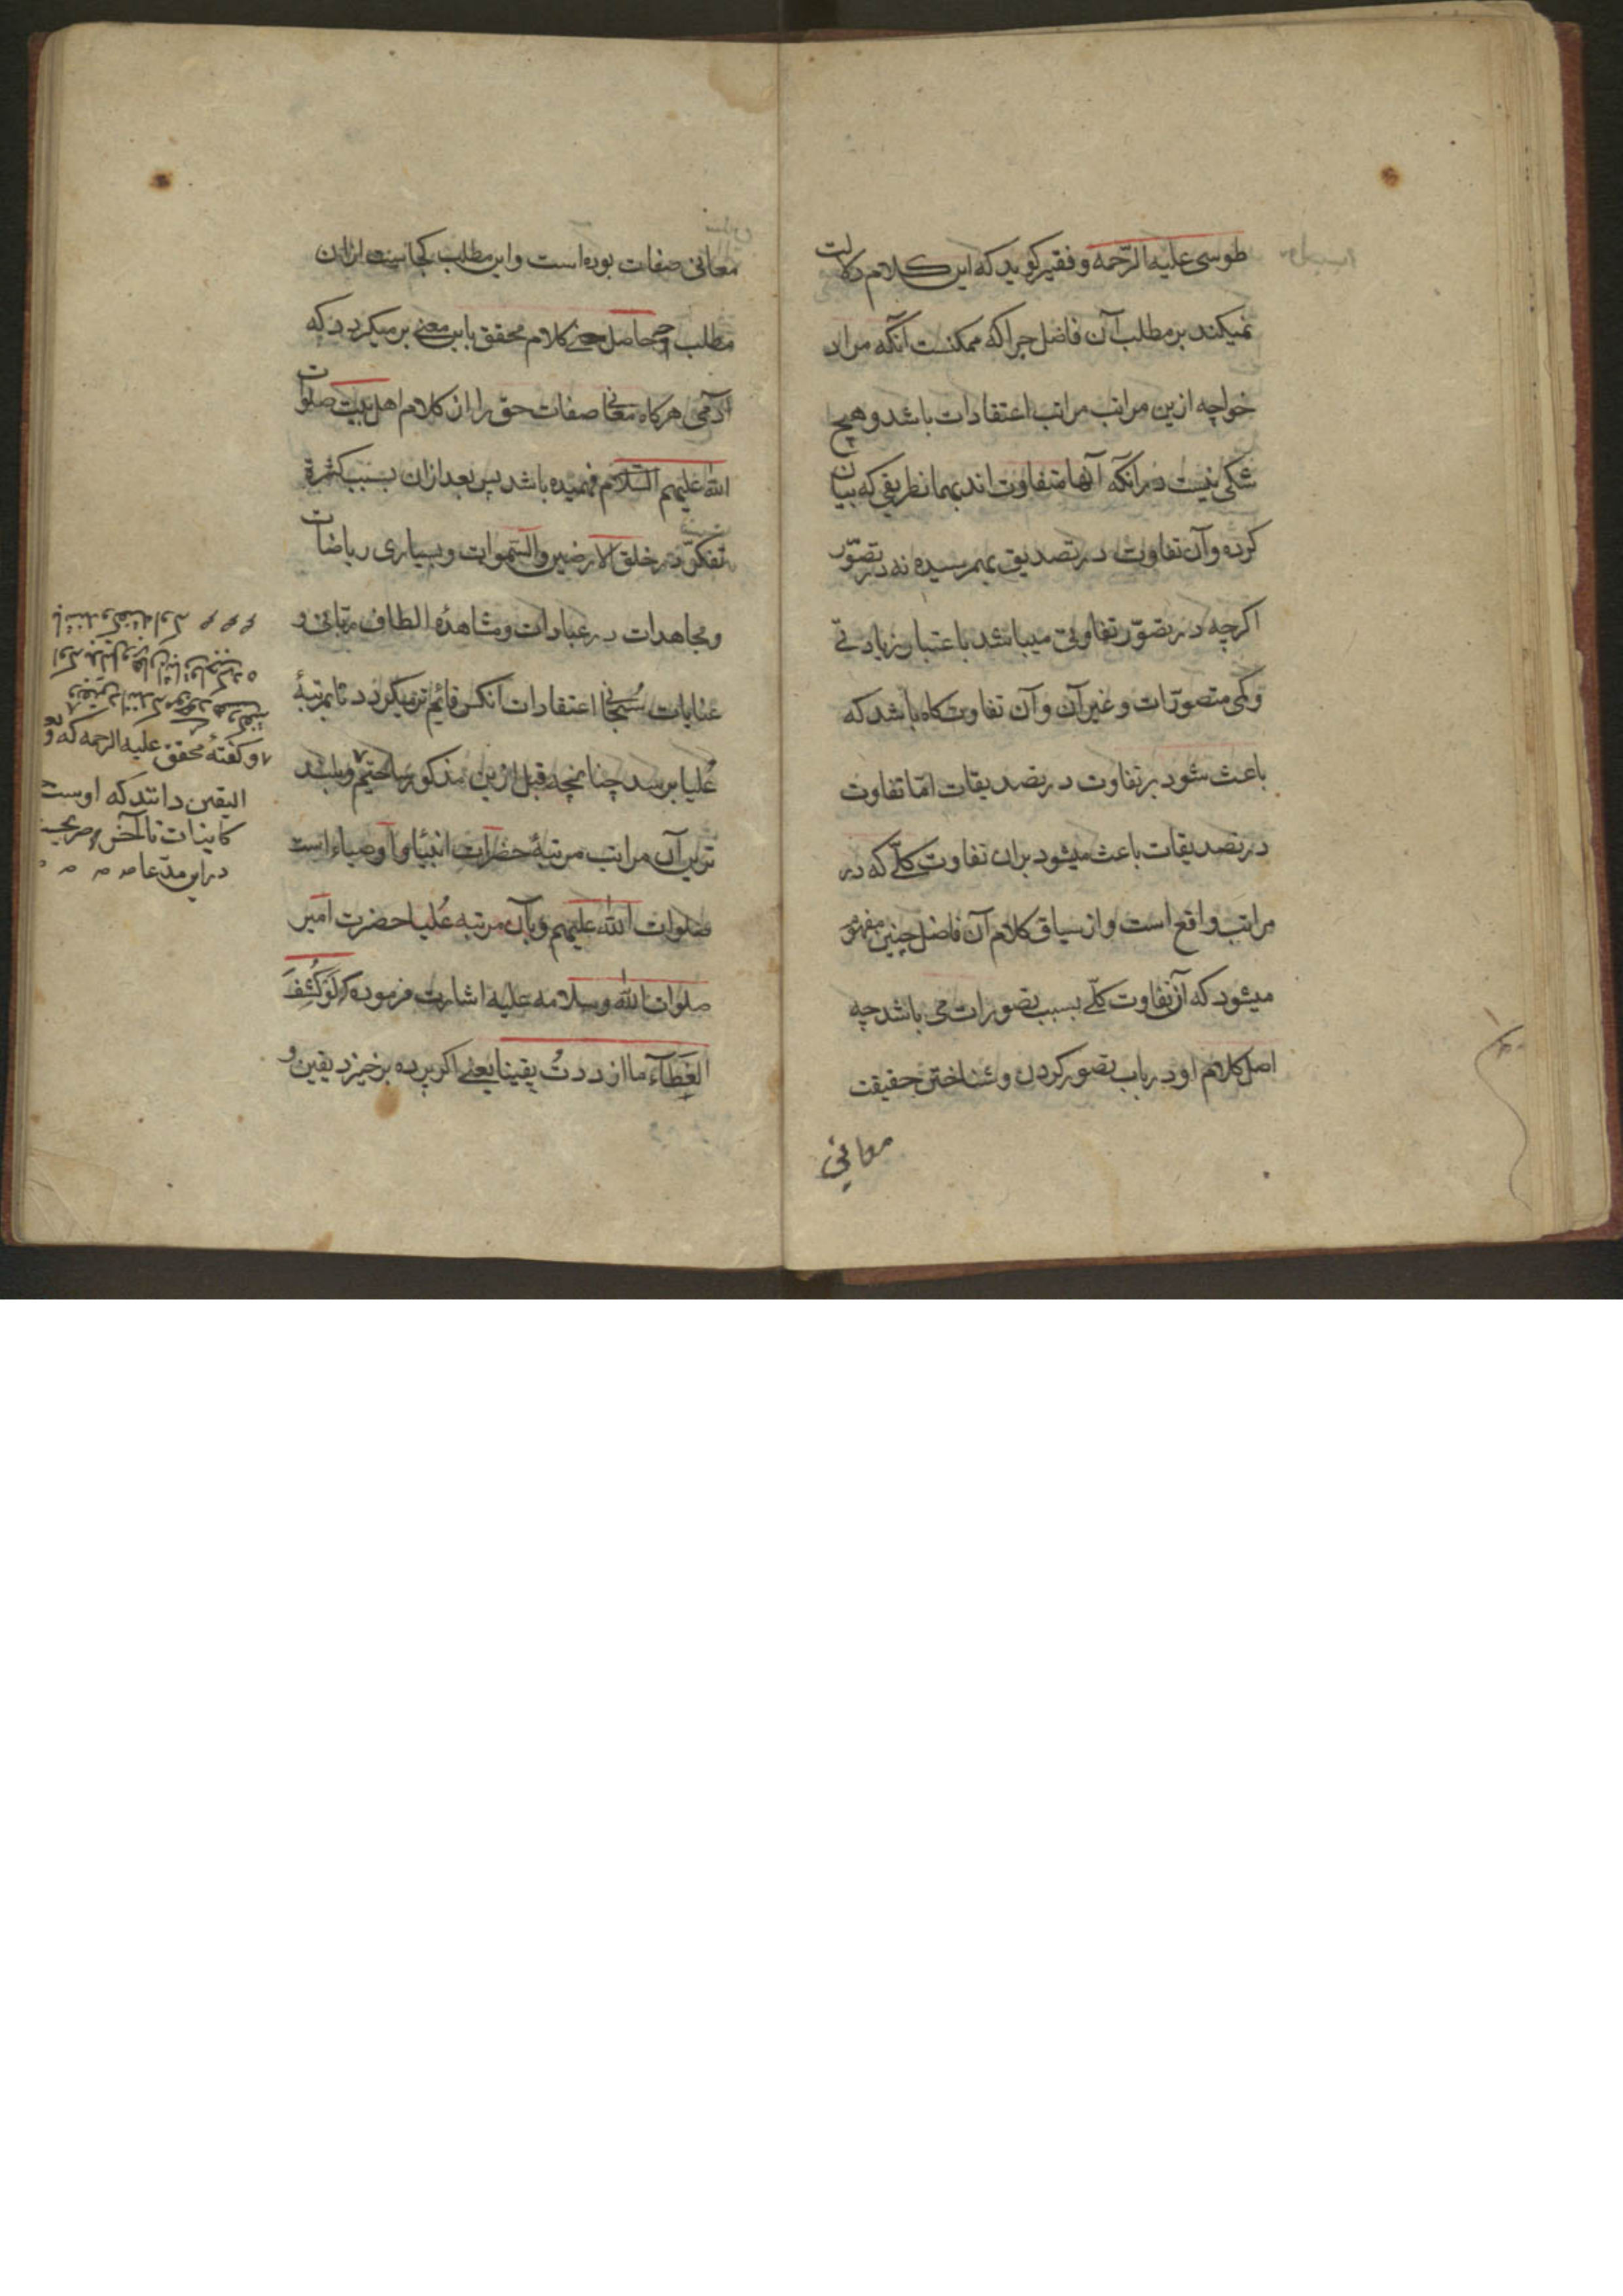 طوسی علیه الرّحمه و فقیر کوید که این کلام دلالت
نمیکند بر مطلب آن فاضل چراکه ممکنست آنکه مراد
خواجه ازین مراتب مراتب اعتقادات باشد و هیچ
شکی نیست در انکه آنها متفاوت اند بهمانطریقی که بیان
کرده و آن تفاوت در تصدیق بهم رسیده نه در تصوّر
اکرچه در تصوّر تفاوتی میباشد باعتبار زیادتی
و کمی متصوّرات و غیر آن و آن تفاوت کاه باشد که
باعث شود بر تفاوت در تصدیقات امّا تفاوت
در تصدیقات باعث میشود بران تفاوت کلّی که در
مراتب واقع است و از سیاق کلام آن فاضل چنین مفهوم
میشود که آن تفاوت کلّی بسبب تصورات می باشد چه
اصل کلام او در باب تصور کردن و شناختن حقیقت
معانی
معانی صفات بوده است و این مطلب کجاست ازان
مطلب و حاصل کلام محقق باین معنی برمیکردد که
آدمی هرکاه معانی صفات حق را از کلام اهل بیت صلوات
الله علیهم السّلام فهمیده باشد پس بعد ازان بسبب کثرة
تفکّر در خلق الارضین والسّموات و بسیاری ریاضات
و مجاهدات در عبادات و مشاهدهٔ الطاف ربّانی و
عنایات سُبحانی اعتقادات انکس قائم تر میکردد تا بمرتبهٔ
عُلیا برسد چنانچه قبل ازین مذکور ساختیم و بلند
ترین آن مراتب مرتبهٔ حضرات انبیا و اوصیاء است
صلوات الله علیهم و بآن مرتبه عُلیا حضرت امیر
صلوات الله وسلامه علیه اشارت فرموده که لَوْ کُشِفَ
الغِطَآءُ ما ازددتُ یقینا یعنی اکر پرده برخیزد یقین و
و کفتهٔ محقق علیه الرحمه که و
الیقین دانند که اوست
کاینات تا آخر صریح
در این مدّعا